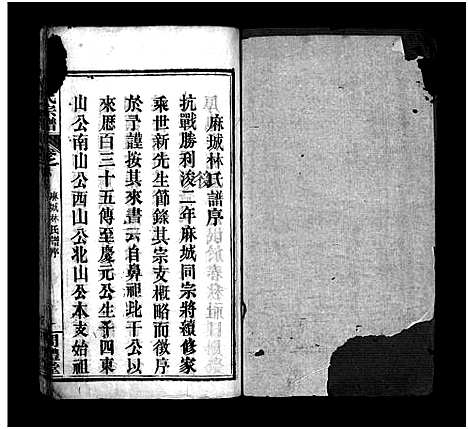 麻城林氏譜序
抗戰勝利後二年麻城同宗將續修家
乘世新先生節錄其宗支概略而徵序
於予謹按其來書云自鼻祖比干公以
來歷百三十五傳至慶元公生子四東
山公南山公西山公北山公本支始祖
氏宗譜
卷之
麻城林氏譜序